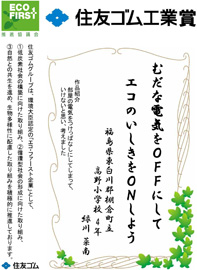 ECO FIRST
推進協議会
住友ゴム工業賞
むだな電気をOFFにして
エコのいしきをONしよう
福島県東白川郡棚倉町立
高野小学校4年
緑川 茉南
作品紹介
部屋の電気をつけっぱなしにしてしまって、
いけないと思い、考えました
住友ゴムグループは、環境大臣認定の「エコ・ファースト企業」として、
①低炭素社会の構築に向けた取り組み、②循環型社会の形成に向けた取り組み、
③自然との共生を進め、生物多様性に配慮した取り組みを積極的に推進しております。
住友ゴム